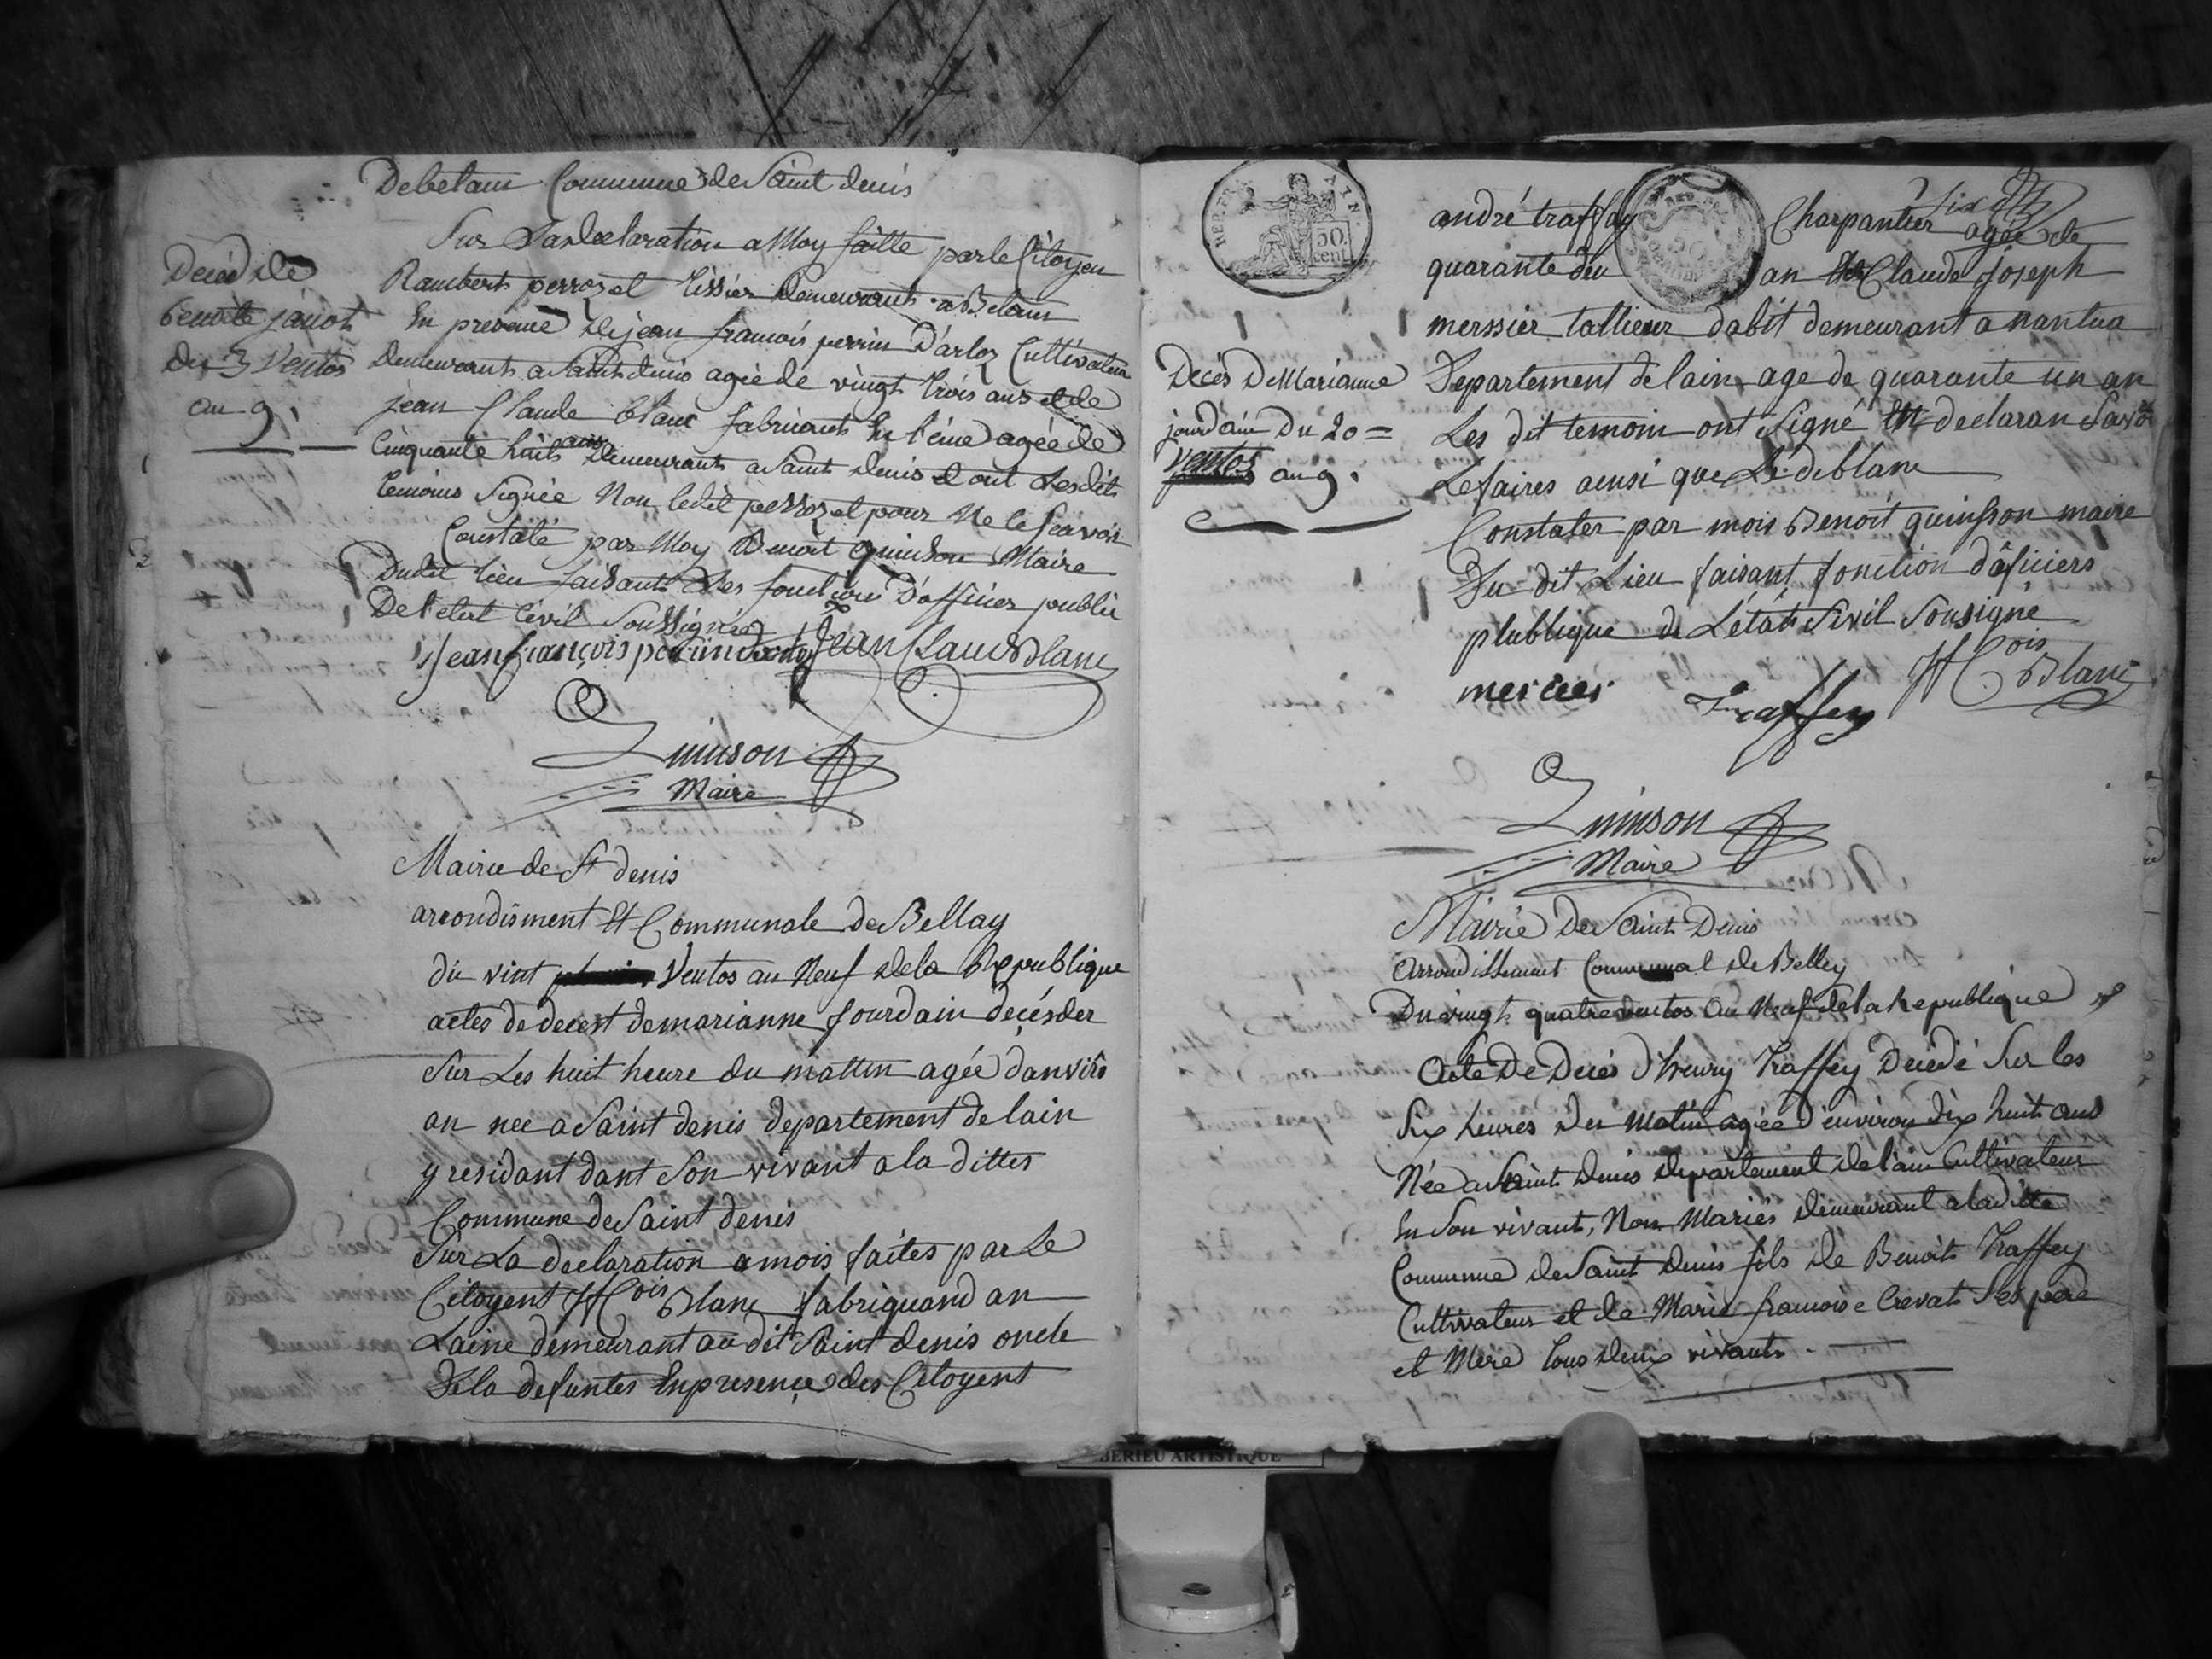 Debelam Commune de Saint denis
Sur La declaration a Moy faitte par le Citoyen
Rambert perrozet tissier demeurant a Belam
En presence de jean francois perrin D'arloz Cultivateur
demeurant a Saint denis agée de vingt trois ans et de
jean Claude blanc fabricant En l'eine agée de
Cinquante huit ans demeurant a Saint denis et ont Lesdits
temoins Signée Non ledit perrozet pour Ne le Scavoir
Constaté par Moy Benoit quinson Maire
Dudit lieu faisant Les fonction D'officier public
De l'etat Civil Soussignée
Jean françois perrin Jean Claude Blanc
Quinson
Maire
Decéd de
benoite janot
du 3 Ventos
an 9.
Mairie de St denis
arrondisment Et Communale de Bellay
du vint Ventos an Neuf de la Republique
actes de decest de marianne Jourdain decésder
Sur Les huit heure du mattin agée d'anviro
an nee a Saint denis departement de lain
y residant dant Son vivant a la dittes
Commune de Saint denis
Sur La declaration a mois faites par Le
Citoyent ois Blanc fabriquand an
Laine demeurant au dit Saint denis oncle
De la defuntes En presence des Citoyent
50 cent
andré traffay Charpantier agée de
quarante deu an Et Claude Joseph
merssier tallieur dabit demeurant a nantua
Departement de lain age de quarante un an
Les dit temoin ont Signé Et declaran Savoir
Lefaires aensi que Le deblanc
Constater par mois Benoit quinsson maire
Du-dit Lieu faisant fonction d'oficiers
plublique de L'état Sivil Sousigné
mercier Traffey ois Blanc
Quinson
Maire
Decés De Marianne
jourdain Du 20 =
ventos an 9.
Mairie De Saint Denis
Arrondissement Communal de Belley
Du vingt quatre ventos an Neuf de la Republique
Acte De Decés d'henry traffey Decedé Sur les
Six heures du Matin agée d'environ dix huit ans
Née a Saint Denis departement de l'ain Cultivateur
En Son vivant, Non Mariés demeurant a la ditte
Commune de Saint Denis fils de Benoit Traffey
Cultivateur et de Marie francoise Crevat Ses pere
et Mere tous deux vivants.
BERIEU ARTISTIQUE